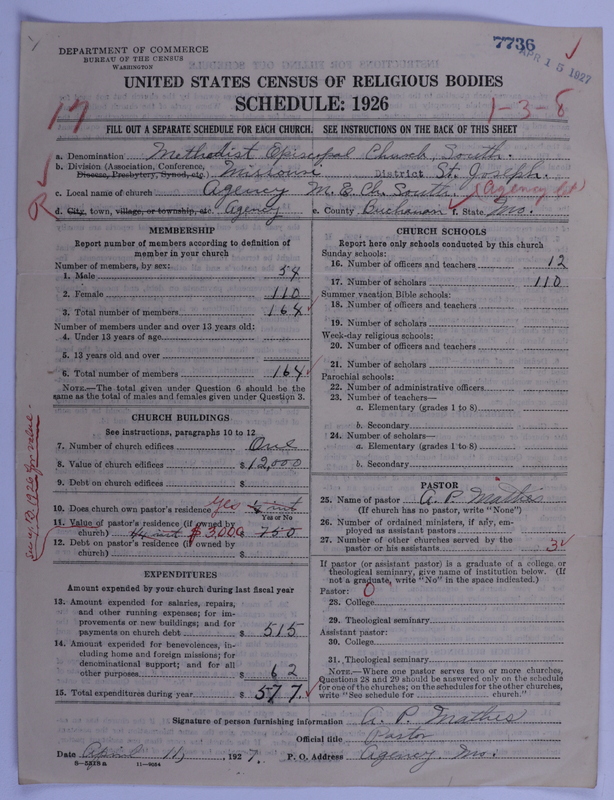 7736
APR 15 1927
DEPARTMENT OF COMMERCE
BUREAU OF THE CENSUS
WASHINGTON
UNITED STATES CENSUS OF RELIGIOUS BODIES
SCHEDULE: 1926
17
1-3-8
FILL OUT A SEPARATE SCHEDULE FOR EACH CHURCH. SEE INSTRUCTIONS ON THE BACK OF THIS SHEET
a. Denomination Methodist Episcopal Church, South.
b. Division (Association, Conference, Diocese, Presbytery, Synod, etc.) Missouri District St. Joseph.
c. Local name of church Agency M. E. Ch. South.
d. City, town, village, or township, etc. Agency e. County Buchanan f. State Mo.
MEMBERSHIP
Report number of members according to definition of
member in your church
Number of members, by sex:
1. Male 54
2. Female 110
3. Total number of members 164
Number of members under and over 13 years old:
4. Under 13 years of age
5. 13 years old and over
6. Total number of members 164
NOTE.—The total given under Question 6 should be the
same as the total of males and females given under Question 3.
CHURCH BUILDINGS
See instructions, paragraphs 10 to 12
7. Number of church edifices One
8. Value of church edifices $ 12,000
9. Debt on church edifices $
10. Does church own pastor's residence? Yes 1/4 int
Yes or No
11. Value of pastor's residence (if owned by
church) 1/4 int $3,000 $ 750
12. Debt on pastor's residence (if owned by
church) $
EXPENDITURES
Amount expended by your church during last fiscal year
13. Amount expended for salaries, repairs,
and other running expenses; for im-
provements or new buildings; and for
payments on church debt $ 515
14. Amount expended for benevolences, in-
cluding home and foreign missions; for
denominational support; and for all
other purposes $ 62
15. Total expenditures during year $ 577
CHURCH SCHOOLS
Report here only schools conducted by this church
Sunday schools:
16. Number of officers and teachers 12
17. Number of scholars 110
Summer vacation Bible schools:
18. Number of officers and teachers
19. Number of scholars
Week-day religious schools:
20. Number of officers and teachers
21. Number of scholars
Parochial schools:
22. Number of administrative officers
23. Number of teachers—
a. Elementary (grades 1 to 8)
b. Secondary
24. Number of scholars—
a. Elementary (grades 1 to 8)
b. Secondary
PASTOR
25. Name of pastor A. P. Mathis
(If church has no pastor, write "None")
26. Number of ordained ministers, if any, em-
ployed as assistant pastors
27. Number of other churches served by the
pastor or his assistants 3
If pastor (or assistant pastor) is a graduate of a college or
theological seminary, give name of institution below. (If
not a graduate, write "No" in the space indicated.)
Pastor: 0
28. College
29. Theological seminary
Assistant pastor:
30. College
31. Theological seminary
NOTE.—Where one pastor serves two or more churches,
Questions 28 and 29 should be answered only on the schedule
for one of the churches; on the schedules for the other churches,
write "See schedule for church.
Signature of person furnishing information A. P. Mathis
Official title Pastor
Date April 14, 1927. P. O. Address Agency Mo.
8-5818a 11-9034